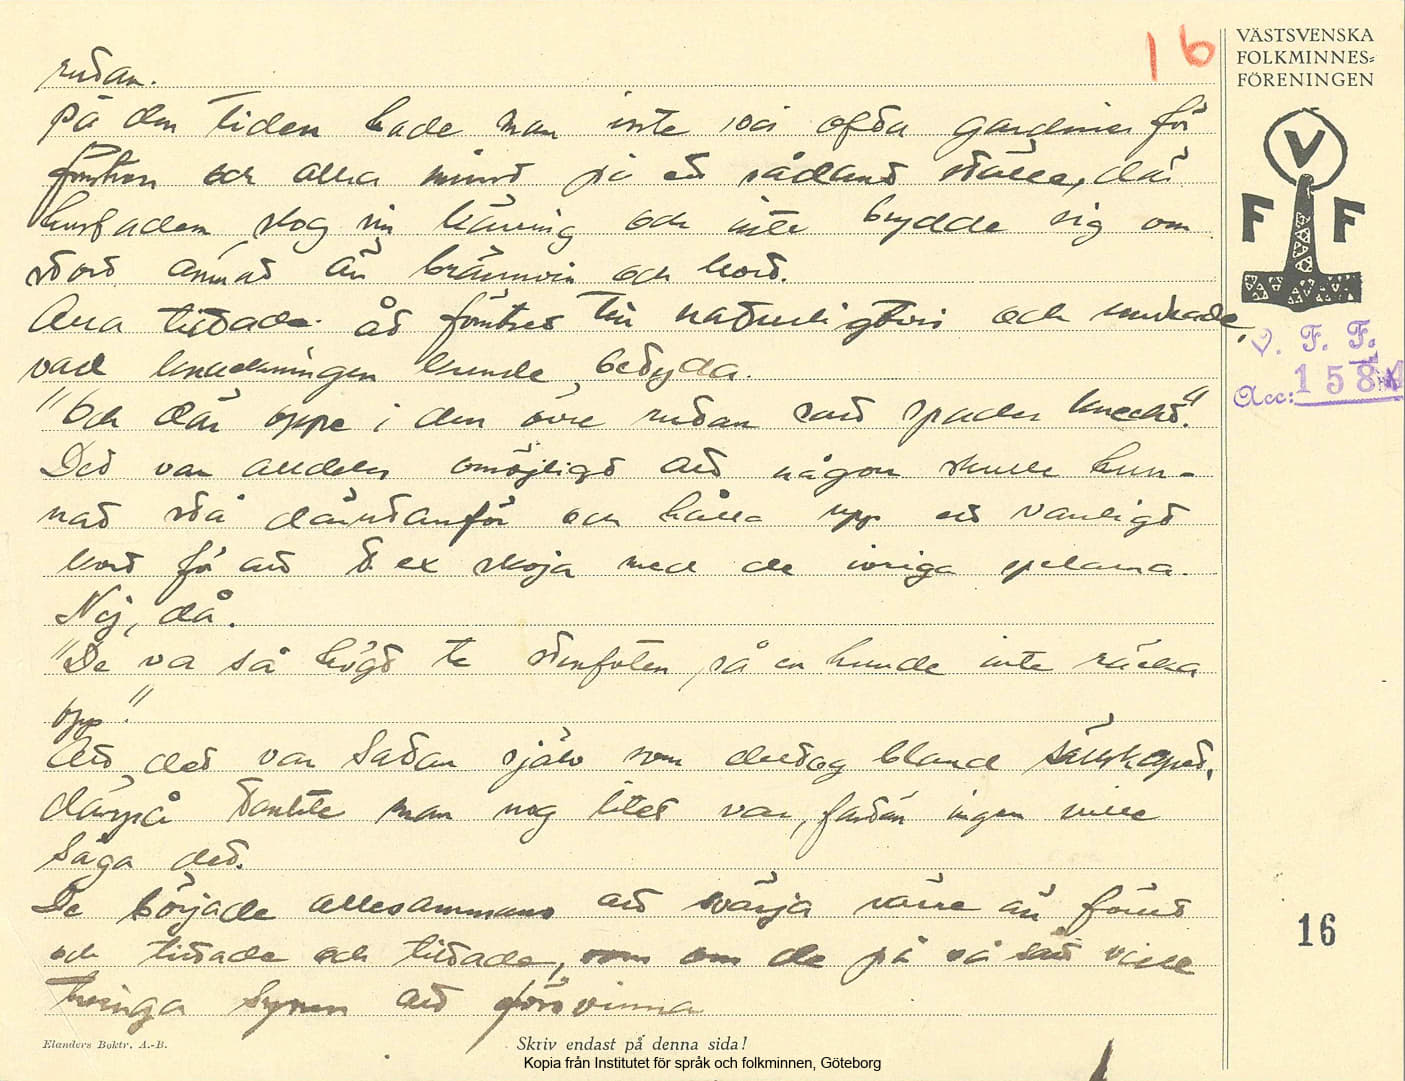 16
VÄSTSVENSKA
FOLKMINNES=
FÖRENINGEN
V
F F
V. F. F.
Acc: 1584
rutan.
På den tiden hade man inte så ofta gardiner för
fönstren och allra minst på ett sådant ställe, där
husfadern slog sin käring och inte brydde sig om
stort annat än brännvin och kort.
Alla tittade åt fönstret till naturligtvis och undrade,
vad knackningen kunde betyda.
"Och där oppe i den övre rutan satt spader knecht."
Det var alldeles omöjligt att någon skulle kun-
nat stå därutanför och hålla upp ett vanligt
kort för att t. ex skoja med de övriga spelarna.
Nej, då.
"De va så högt te stenfoten, så en kunde inte räcka
opp."
Att det var Satan själv som deltog bland sällskapet,
därpå tänkte man nog litet var, fastän ingen ville
säga det.
De började allesammans att svärja värre än förut
och tittade och tittade, som om de på så sätt ville
tvinga synen att försvinna
16
Elanders Boktr. A.-B.
Skriv endast på denna sida!
Kopia från Institutet för språk och folkminnen, Göteborg